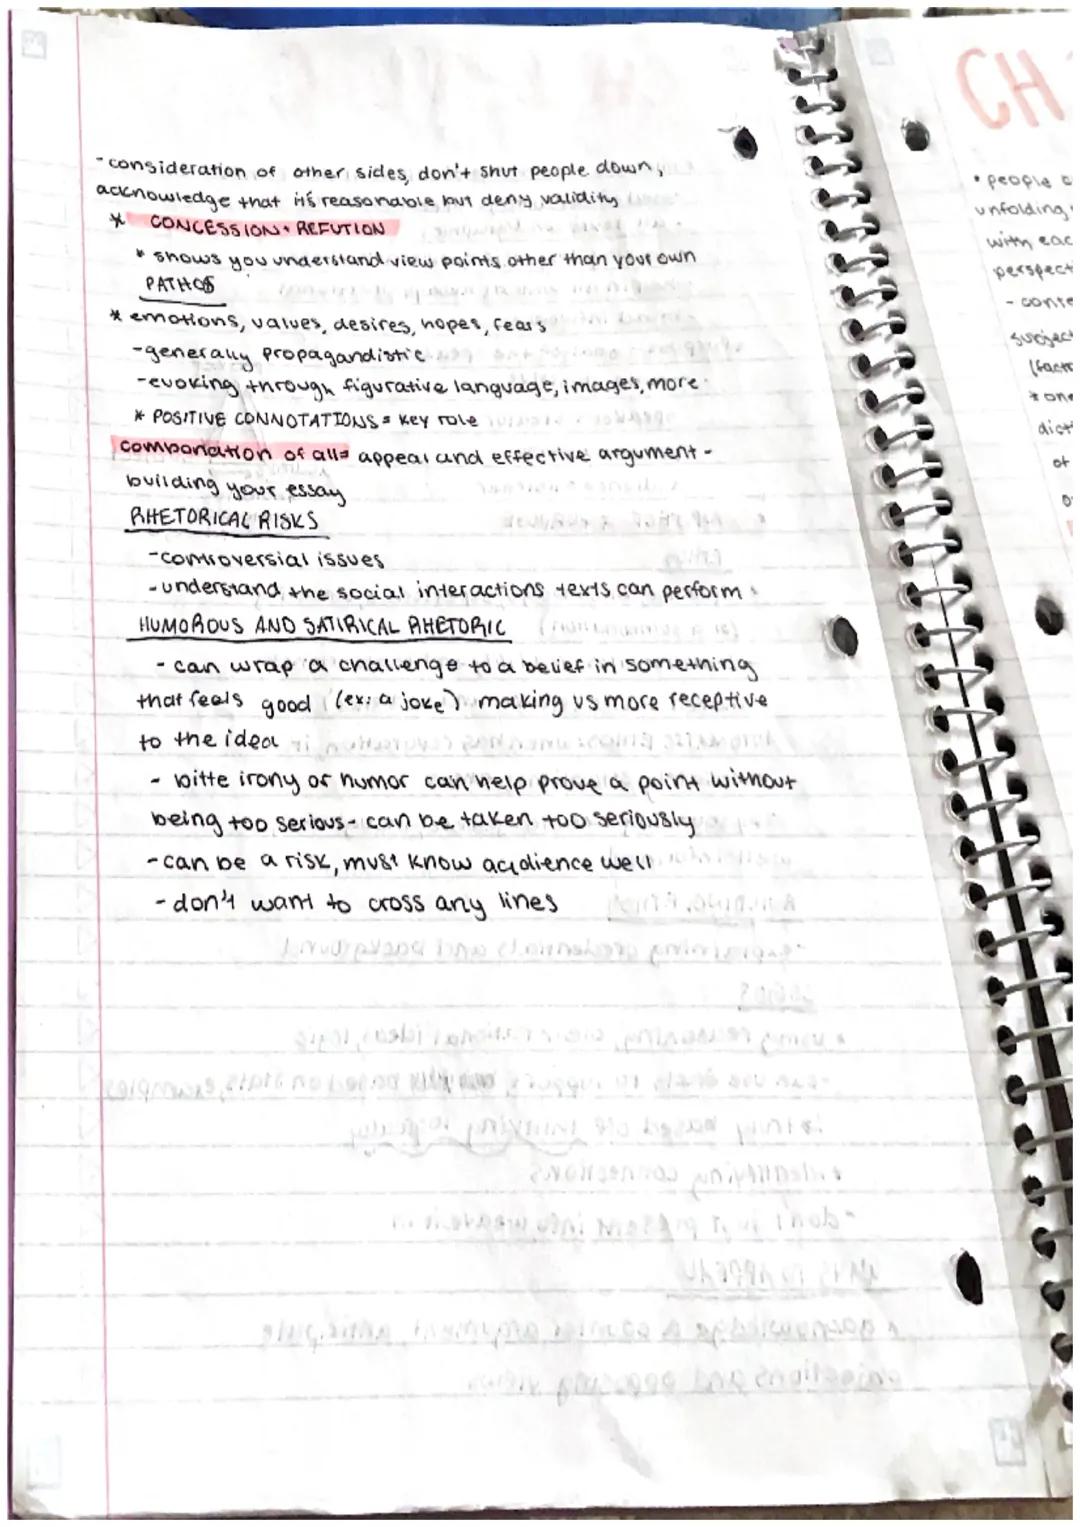 - consideration of other sides, don't shut people down,
acknowledge that it's reasonable but deny validity
* CONCESSION + REFUTION
* shows you understand view points other than your own
PATHOS
* emotions, values, desires, hopes, fears
- generally propagandistic
- evoking through figurative language, images, more
* POSITIVE CONNOTATIONS = key role
combonation of all = appeal and effective argument -
building your essay
RHETORICAL RISKS
- controversial issues
- understand the social interactions texts can perform
HUMOROUS AND SATIRICAL RHETORIC
- can wrap a challenge to a belief in something
that feels good (ex: a joke) making us more receptive
to the idea
- bitte irony or humor can help prove a point without
being too serious - can be taken too seriously
- can be a risk, must know audience well
- don't want to cross any lines
CH
• people
unfolding
with eac
perspect
- conte
subject
(facto
* one
dict
of